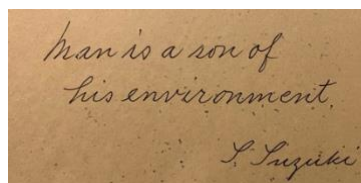 Man is a son of
his environment.
S. Suzuki